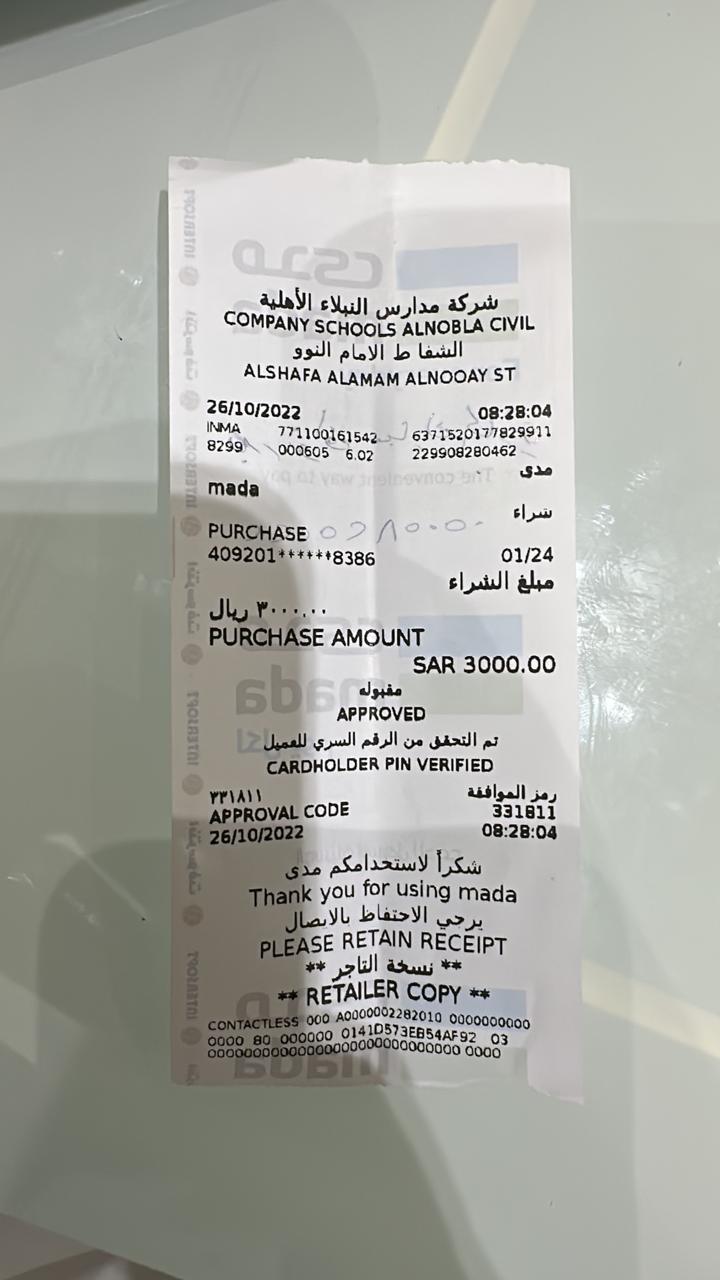 شركة مدارس النبلاء الأهلية
COMPANY SCHOOLS ALNOBLA CIVIL
الشفا ط الامام النوو
ALSHAFA ALAMAM ALNOOAY ST
26/10/2022 08:28:04
INMA 771100161542 6371520177829911
8299 000605 6.02 229908280462
مدى
mada
شراء
PURCHASE
409201******8386 01/24
مبلغ الشراء
٣٠٠٠.٠٠ ريال
PURCHASE AMOUNT
SAR 3000.00
مقبوله
APPROVED
تم التحقق من الرقم السري للعميل
CARDHOLDER PIN VERIFIED
٣٣١٨١١ رمز الموافقة
APPROVAL CODE 331811
26/10/2022 08:28:04
شكراً لاستخدامكم مدى
Thank you for using mada
يرجي الاحتفاظ بالايصال
PLEASE RETAIN RECEIPT
** نسخة التاجر **
** RETAILER COPY **
CONTACTLESS 000 A0000002282010 0000000000
0000 80 000000 0141D573EB54AF92 03